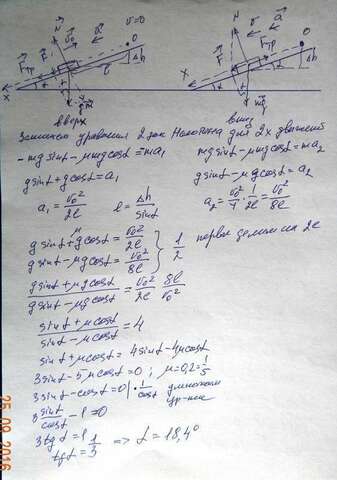 υ=0
O
Δh
l
X
вверх
вниз
Запишем уравнения 2 зак Ньютона для 2х движений
-mg sinα - μmg cosα = ma₁
mg sinα - μmg cosα = ma₂
g sinα + g cosα = a₁
g sinα - μg cosα = a₂
a₁ = υ₀²/2l
l = Δh/sinα
a₂ = υ₀²/4 · 1/2l = υ₀²/8l
g sinα + μg cosα = υ₀²/2l
g sinα - μg cosα = υ₀²/8l
1/2
первое делим на 2е
(g sinα + μg cosα)/(g sinα - μg cosα) = υ₀²/2l · 8l/υ₀²
(sinα + μ cosα)/(sinα - μ cosα) = 4
sinα + μcosα = 4sinα - 4μcosα
3sinα - 5μcosα = 0 ; μ = 0,2 = 1/5
3sinα - cosα = 0 | · 1/cosα умножаем
ур-ние
3 sinα/cosα - 1 = 0
3 tgα = 1
tgα = 1/3 => α = 18,4°
25 09 2016